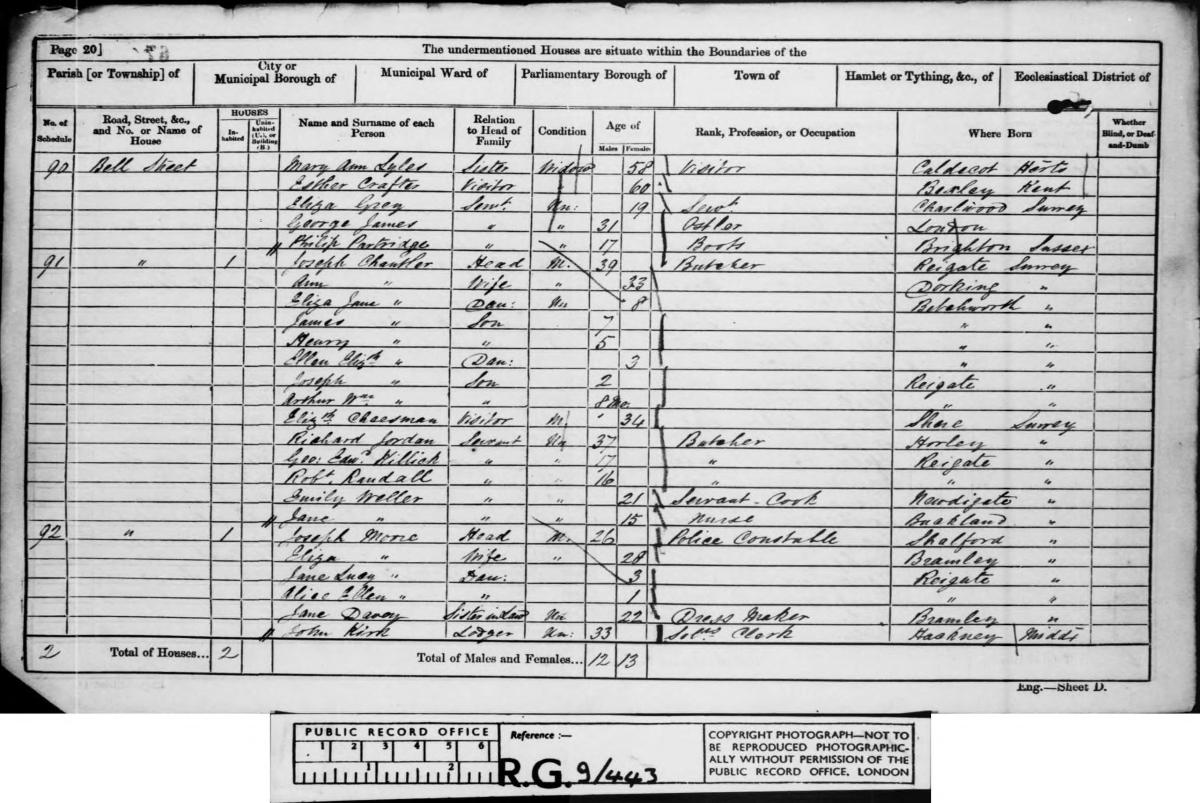 Page 20]
The undermentioned Houses are situate within the Boundaries of the
Parish [or Township] of City or Municipal Borough of Municipal Ward of Parliamentary Borough of Town of Hamlet or Tything, &c., of Ecclesiastical District of
No. of Schedule Road, Street, &c., and No. or Name of House HOUSES Inhabited Uninhabited (U.), or Building (B.) Name and Surname of each Person Relation to Head of Family Condition Age of Males Females Rank, Profession, or Occupation Where Born Whether Blind, or Deaf-and-Dumb
90 Bell Street Mary Ann Lyles Sister Widow 58 Visitor Caldecot Herts
Esther Crafter Visitor " 60 Bexley Kent
Eliza Grey Servt. Un: 19 Servt. Charlwood Surrey
George James " " 31 Ostler London
Philip Partridge " " 17 Boots Brighton Sussex
91 " 1 Joseph Chantler Head M. 39 Butcher Reigate Surrey
Ann " Wife " 33 Dorking "
Eliza Jane " Dau: Un 8 Betchworth "
James " Son 7 " "
Henry " " 5 " "
Ellen Elizth " Dau: 3 " "
Joseph " Son 2 Reigate "
Arthur Wm " " 8 Mo. " "
Elizth Cheesman Visitor M 34 Shere Surrey
Richard Jordan Servant Un 37 Butcher Horley "
Geo: Edwd Killick " " 17 " Reigate "
Robt Randall " " 16 " " "
Emily Weller " " 21 Servant - Cook Newdigate "
Jane " " " 15 Nurse Buckland "
92 " 1 Joseph Morie Head M. 26 Police Constable Shalford "
Eliza " Wife " 28 Bramley "
Jane Lucy " Dau: 3 Reigate "
Alice Ellen " " 1 " "
Jane Davey Sister in Law Un 22 Dress Maker Bramley "
John Kirk Lodger Un: 33 Solrs Clerk Hackney Midds
2 Total of Houses... 2 Total of Males and Females... 12 13
Eng.—Sheet D.
PUBLIC RECORD OFFICE
1 2 3 4 5 6
1 2
Reference :—
R.G. 9/443
COPYRIGHT PHOTOGRAPH—NOT TO
BE REPRODUCED PHOTOGRAPHIC-
ALLY WITHOUT PERMISSION OF THE
PUBLIC RECORD OFFICE, LONDON